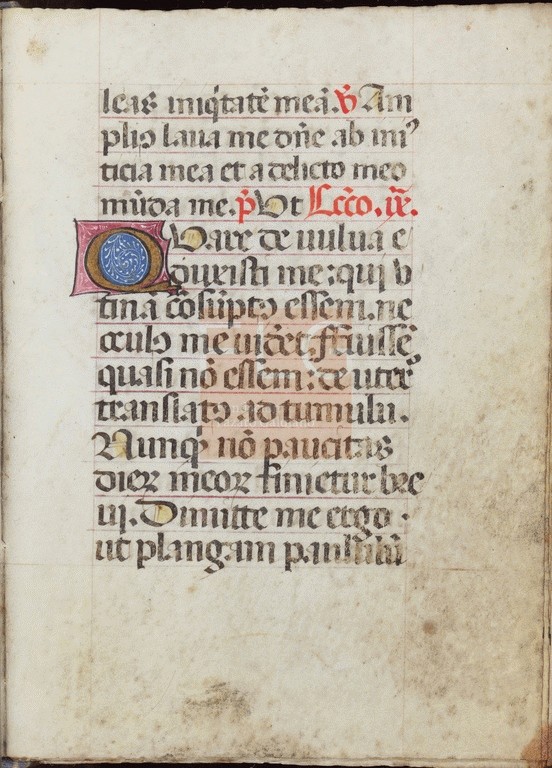 leas iniq̄tatē meā. ℣ Am
pliꝰ laua me dn̄e ab iniꝰ
ticia mea et a delicto meo
mūda me. p̄ Ut Lcc̄o. ix.
Quare de uulua e
duxisti me: qui u
tinā cōsūptꝰ essem. ne
oculꝰ me uidēt. Fuissē
quasi nō essem: de uterꝰ
translatꝰ ad tumulū.
Nunq̄ nō paucitas
dieꝝ meoꝝ finietur bre
ui. Dimitte me ergo.
ut plangam paululū